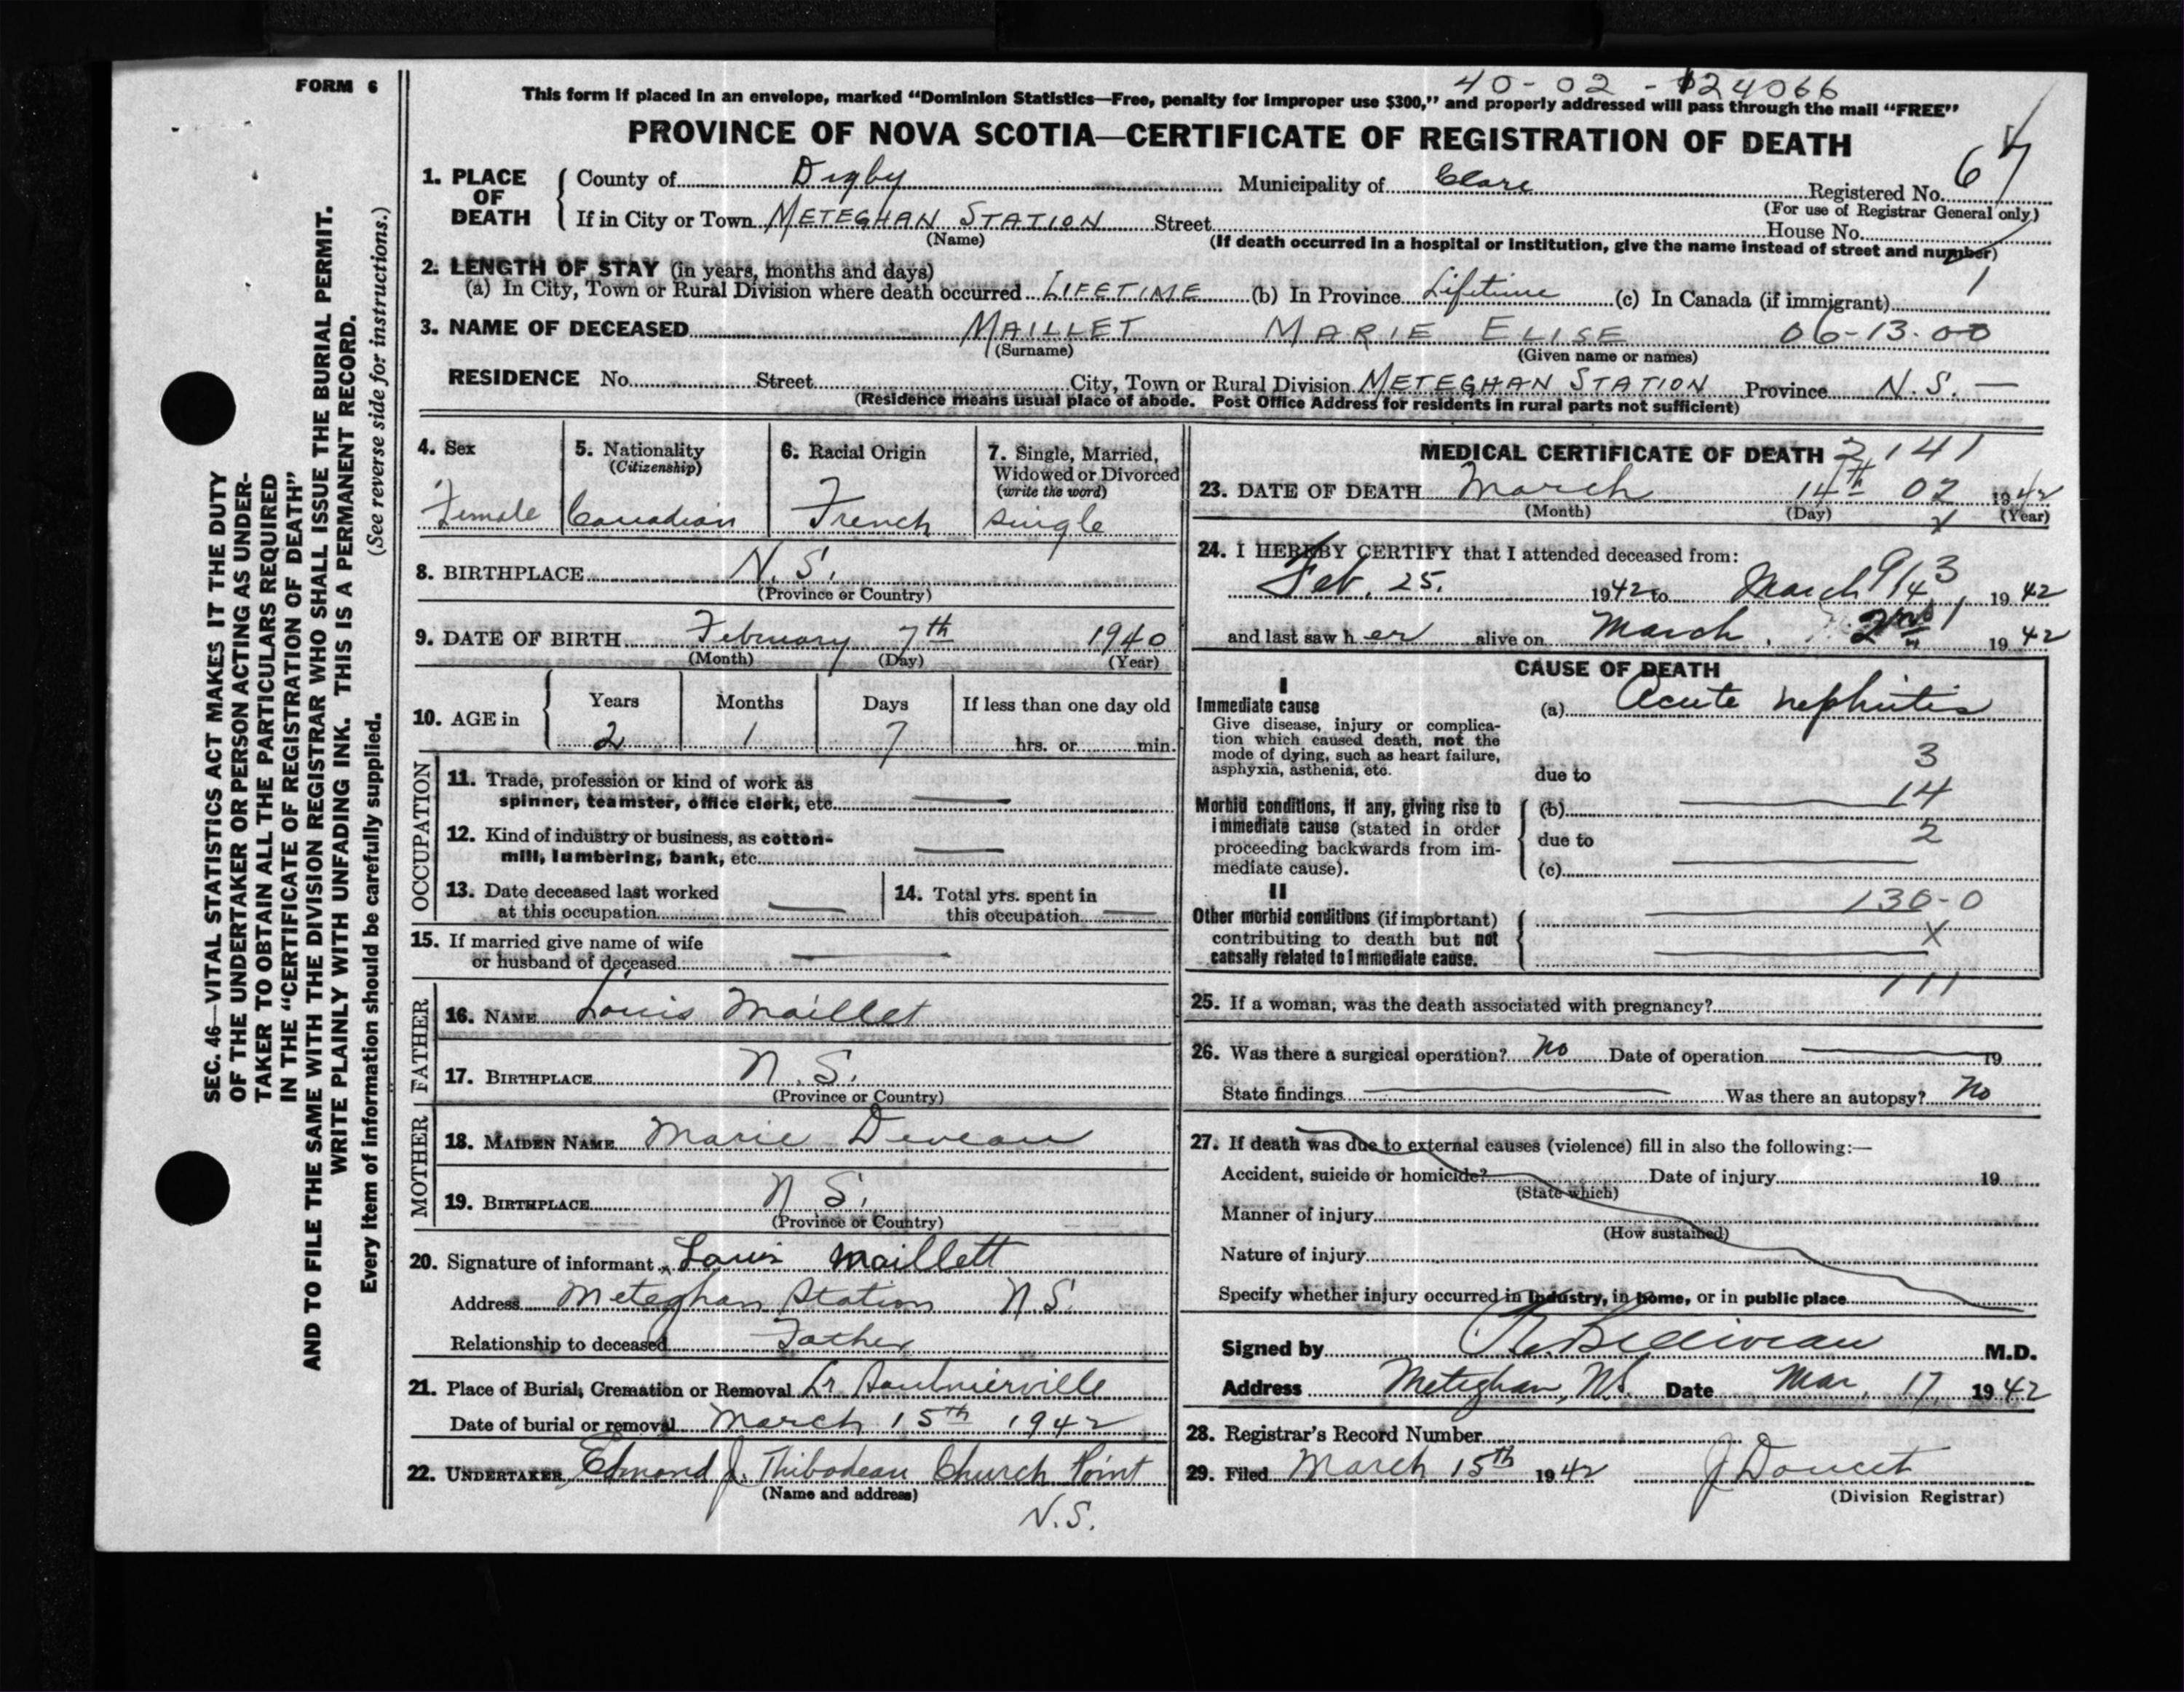 FORM 6
40-02-124066
This form if placed in an envelope, marked “Dominion Statistics—Free, penalty for improper use $300,” and properly addressed will pass through the mail “FREE”
PROVINCE OF NOVA SCOTIA—CERTIFICATE OF REGISTRATION OF DEATH
1. PLACE OF DEATH County of Digby Municipality of Clare Registered No. 67
(For use of Registrar General only)
If in City or Town METEGHAN STATION Street House No.
(Name) (If death occurred in a hospital or institution, give the name instead of street and number)
2. LENGTH OF STAY (in years, months and days)
(a) In City, Town or Rural Division where death occurred LIFETIME (b) In Province Lifetime (c) In Canada (if immigrant) 1
3. NAME OF DECEASED MAILLET MARIE ELISE 06-13-00
(Surname) (Given name or names)
RESIDENCE No. Street City, Town or Rural Division METEGHAN STATION Province N.S. —
(Residence means usual place of abode. Post Office Address for residents in rural parts not sufficient)
4. Sex 5. Nationality (Citizenship) 6. Racial Origin 7. Single, Married, Widowed or Divorced (write the word)
Female Canadian French single
8. BIRTHPLACE N.S.
(Province or Country)
9. DATE OF BIRTH February 7th 1940
(Month) (Day) (Year)
10. AGE in Years Months Days If less than one day old
2 1 7 hrs. or min.
OCCUPATION
11. Trade, profession or kind of work as
spinner, teamster, office clerk, etc. —
12. Kind of industry or business, as cotton-
mill, lumbering, bank, etc. —
13. Date deceased last worked
at this occupation —
14. Total yrs. spent in
this occupation —
15. If married give name of wife
or husband of deceased —
FATHER
16. NAME Louis Maillet
17. BIRTHPLACE N.S.
(Province or Country)
MOTHER
18. MAIDEN NAME Marie Deveau
19. BIRTHPLACE N.S.
(Province or Country)
20. Signature of informant Louis Maillett
Address Meteghan Station N.S.
Relationship to deceased Father
21. Place of Burial, Cremation or Removal Lr. Saulnierville
Date of burial or removal March 15th 1942
22. UNDERTAKER Edmond J. Thibodeau Church Point
(Name and address)
N.S.
MEDICAL CERTIFICATE OF DEATH 2141
23. DATE OF DEATH March 14th 02 1942
(Month) (Day) (Year)
24. I HEREBY CERTIFY that I attended deceased from:
Feb. 25. 1942 to March 14 1942
and last saw her alive on March 2nd 1942
CAUSE OF DEATH
I
Immediate cause
Give disease, injury or complica-
tion which caused death, not the
mode of dying, such as heart failure,
asphyxia, asthenia, etc.
(a) Acute nephritis
3
due to
Morbid conditions, if any, giving rise to
immediate cause (stated in order
proceeding backwards from im-
mediate cause).
(b) — 14
due to 2
(c) —
II
Other morbid conditions (if important)
contributing to death but not
causally related to immediate cause.
— 130-0
X
—
111
25. If a woman, was the death associated with pregnancy?
26. Was there a surgical operation? No Date of operation — 19
State findings — Was there an autopsy? No
27. If death was due to external causes (violence) fill in also the following:—
Accident, suicide or homicide? Date of injury 19
(State which)
Manner of injury
(How sustained)
Nature of injury
Specify whether injury occurred in industry, in home, or in public place
Signed by M.D.
Address Meteghan, N.S. Date Mar. 17, 1942
28. Registrar's Record Number
29. Filed March 15th 1942 J Doucet
(Division Registrar)
SEC. 46—VITAL STATISTICS ACT MAKES IT THE DUTY
OF THE UNDERTAKER OR PERSON ACTING AS UNDER-
TAKER TO OBTAIN ALL THE PARTICULARS REQUIRED
IN THE “CERTIFICATE OF REGISTRATION OF DEATH”
AND TO FILE THE SAME WITH THE DIVISION REGISTRAR WHO SHALL ISSUE THE BURIAL PERMIT.
WRITE PLAINLY WITH UNFADING INK. THIS IS A PERMANENT RECORD.
Every item of information should be carefully supplied. (See reverse side for instructions.)